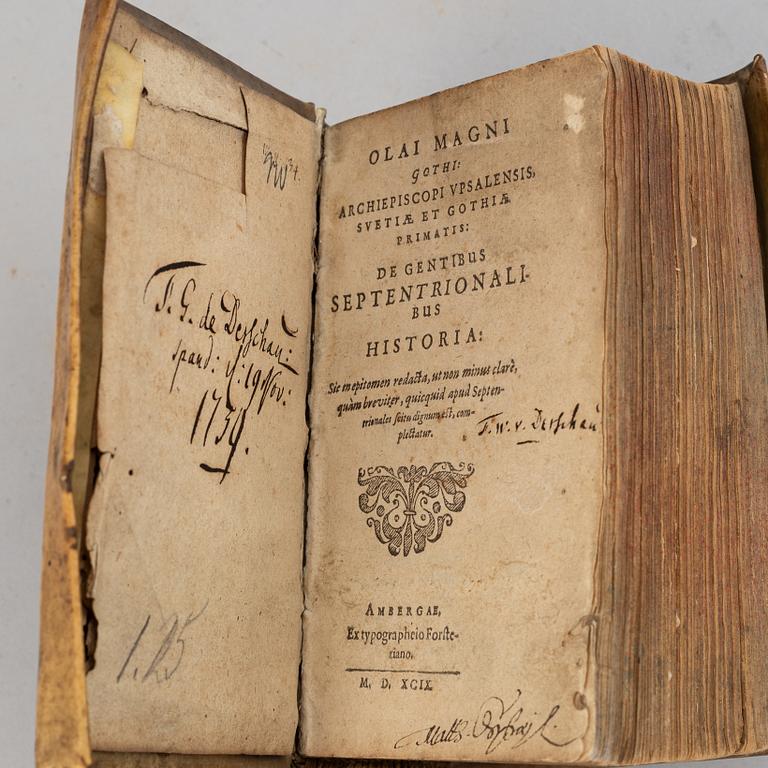 F. G. de Derschau:
spand: d: 19 Nov:
1739.
1.25
OLAI MAGNI
GOTHI:
ARCHIEPISCOPI VPSALENSIS,
SVETIÆ ET GOTHIÆ
PRIMATIS:
DE GENTIBUS
SEPTENTRIONALI-
BUS
HISTORIA:
Sic in epitomen redacta, ut non minus clarè,
quàm breviter, quicquid apud Septen-
trionales scitu dignum est, com-
plectatur.
F. W. v. Derschau
AMBERGAE,
Ex typographeio Forste-
riano.
M. D. XCIX.
Matth.